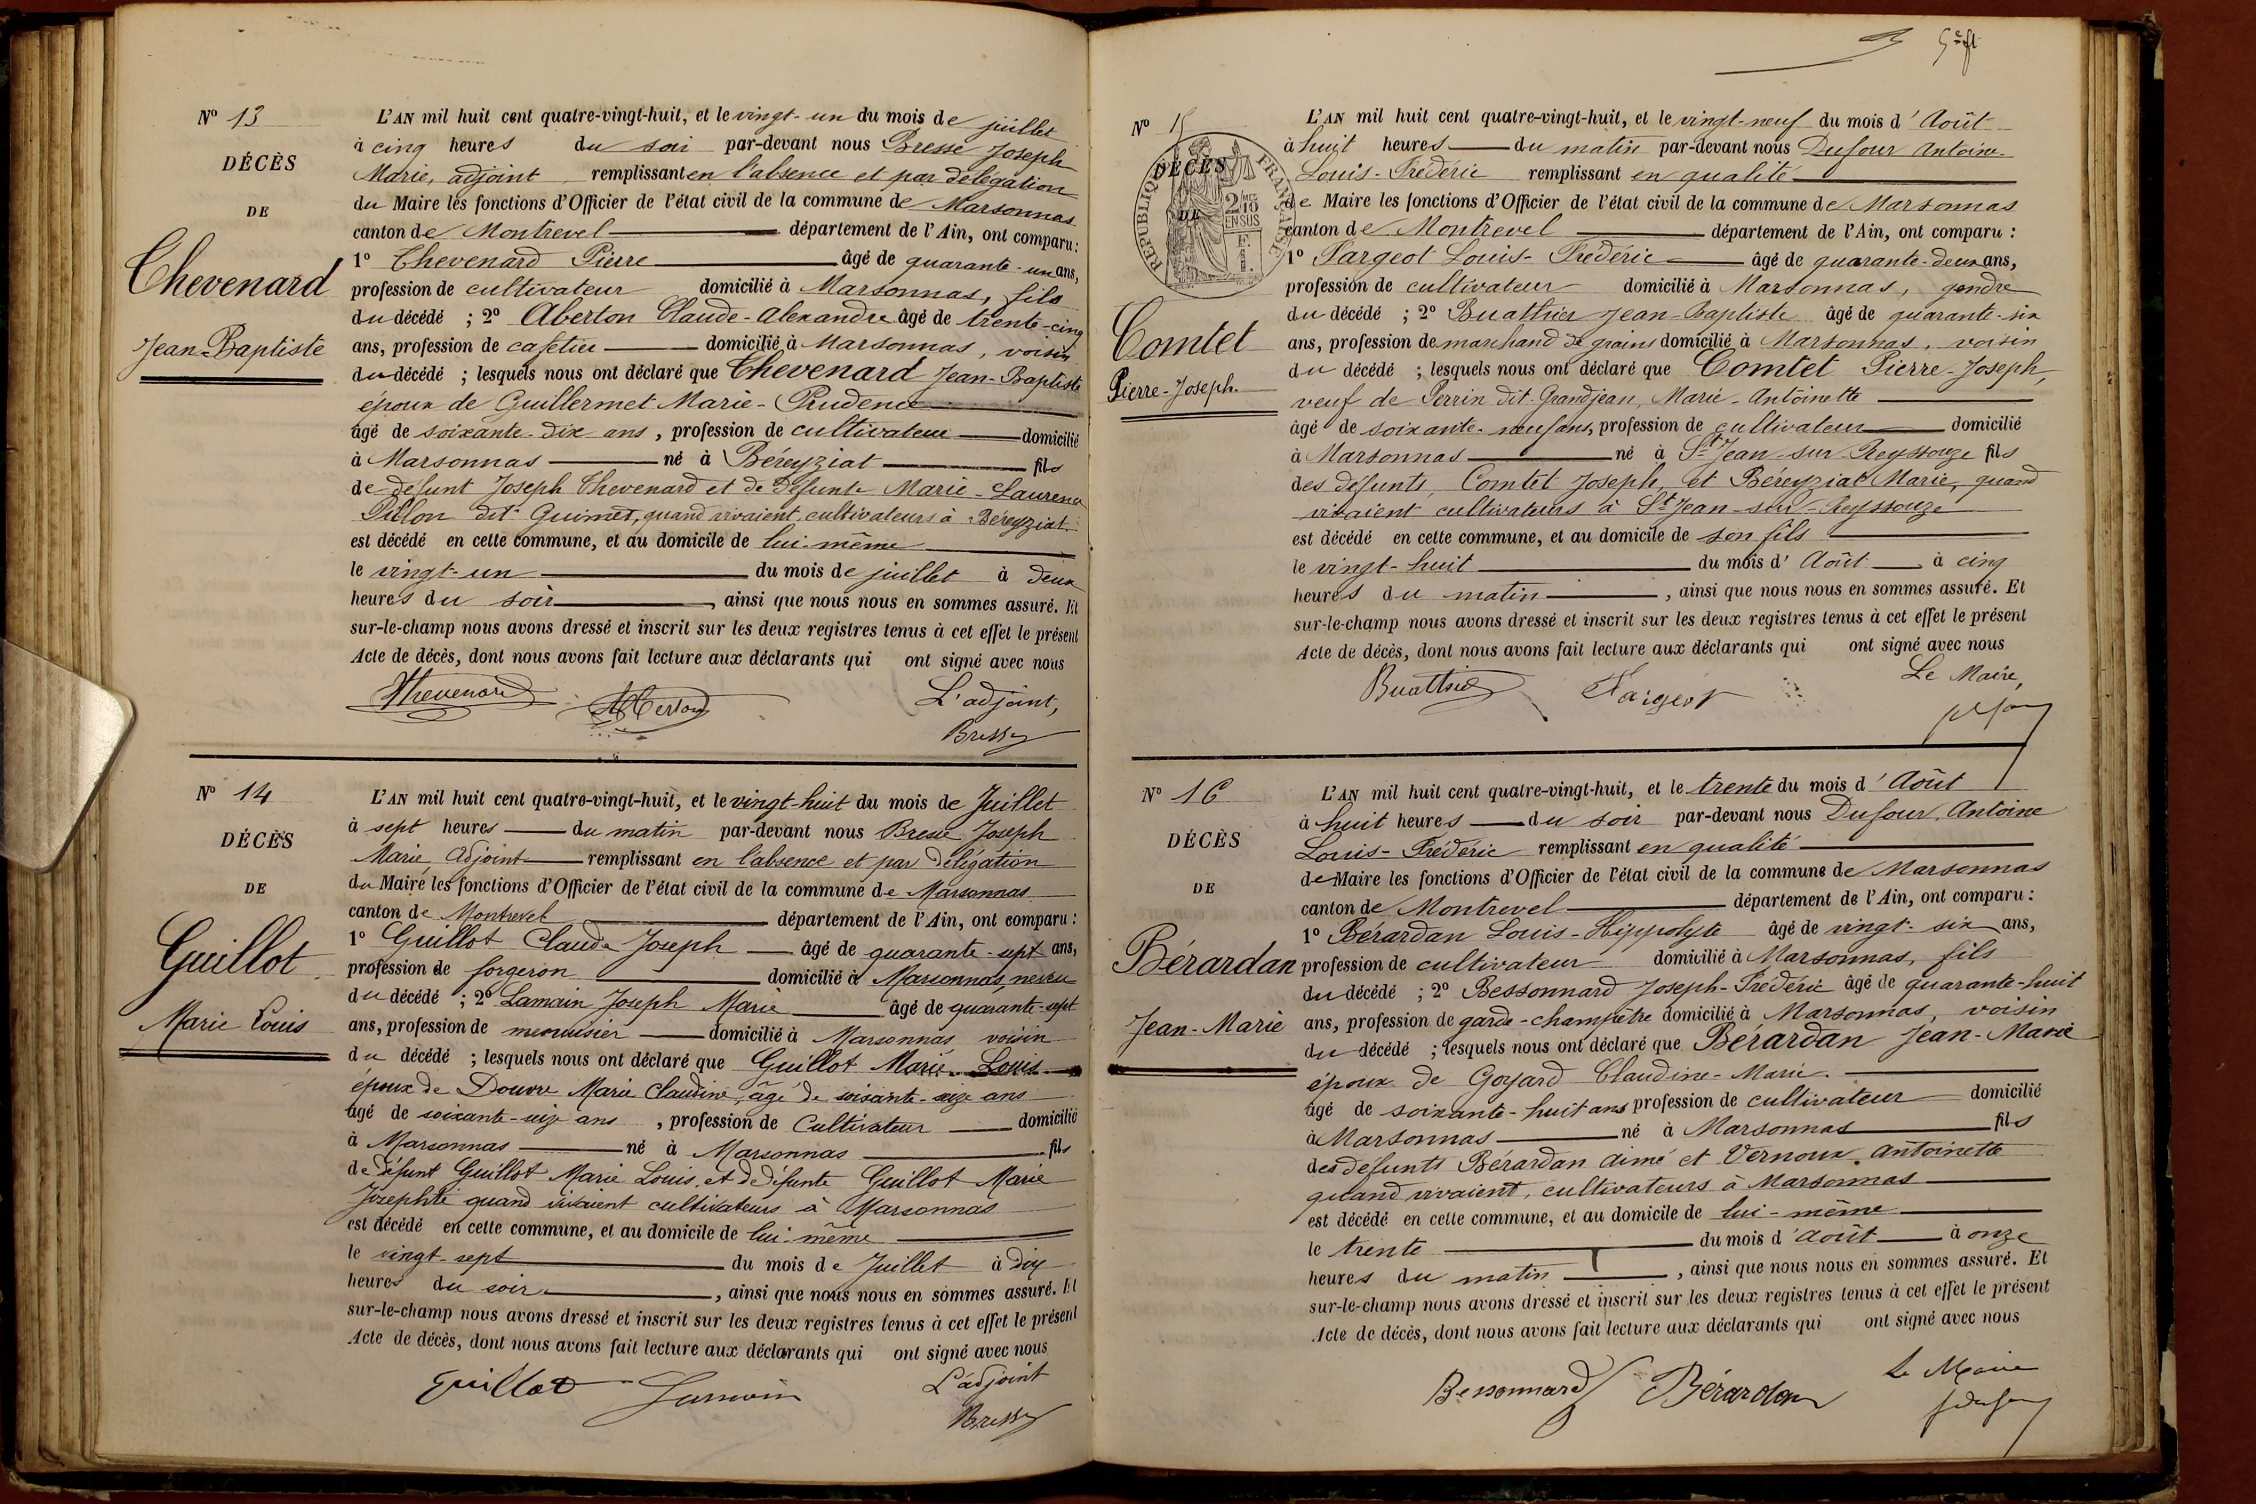 5e ft
Nº 13
DÉCÈS
DE
Chevenard
Jean-Baptiste
L'AN mil huit cent quatre-vingt-huit, et le vingt-un du mois de juillet
à cinq heures du soir par-devant nous Bresse Joseph
Marie, adjoint remplissant en l'absence et par délégation
du Maire les fonctions d'Officier de l'état civil de la commune de Marsonnas
canton de Montrevel département de l'Ain, ont comparu :
1º Chevenard Pierre âgé de quarante-un ans,
profession de cultivateur domicilié à Marsonnas, fils
du décédé ; 2º Aberton Claude-Alexandre âgé de trente-cinq
ans, profession de cafetier domicilié à Marsonnas, voisin
du décédé ; lesquels nous ont déclaré que Chevenard Jean-Baptiste
époux de Guillermet Marie-Prudence
âgé de soixante-dix ans, profession de cultivateur domicilié
à Marsonnas né à Béreyziat fils
de défunt Joseph Chevenard et de défunte Marie-Laurence
Pillon dit Guimet, quand vivaient, cultivateurs à Béreyziat
est décédé en cette commune, et au domicile de lui-même
le vingt-un du mois de juillet à deux
heures du soir, ainsi que nous nous en sommes assuré. Et
sur-le-champ nous avons dressé et inscrit sur les deux registres tenus à cet effet le présent
Acte de décès, dont nous avons fait lecture aux déclarants qui ont signé avec nous
Chevenard Aberton L'adjoint,
Bresse
Nº 14
DÉCÈS
DE
Guillot
Marie Louis
L'AN mil huit cent quatre-vingt-huit, et le vingt-huit du mois de Juillet
à sept heures du matin par-devant nous Bresse Joseph
Marie Adjoint remplissant en l'absence et par délégation
du Maire les fonctions d'Officier de l'état civil de la commune de Marsonnas
canton de Montrevel département de l'Ain, ont comparu :
1º Guillot Claude Joseph âgé de quarante-sept ans,
profession de forgeron domicilié à Marsonnas, neveu
du décédé ; 2º Lamain Joseph Marie âgé de quarante-sept
ans, profession de menuisier domicilié à Marsonnas voisin
du décédé ; lesquels nous ont déclaré que Guillot Marie Louis
époux de Douvre Marie Claudine, âgé de soixante-seize ans
âgé de soixante-seize ans, profession de Cultivateur domicilié
à Marsonnas né à Marsonnas fils
de défunt Guillot Marie Louis, et de défunte Guillot Marie
Josephte quand vivaient cultivateurs à Marsonnas
est décédé en cette commune, et au domicile de lui-même
le vingt-sept du mois de Juillet à dix
heures du soir, ainsi que nous nous en sommes assuré. Et
sur-le-champ nous avons dressé et inscrit sur les deux registres tenus à cet effet le présent
Acte de décès, dont nous avons fait lecture aux déclarants qui ont signé avec nous
Guillot Lamain L'adjoint
Bresse
Nº 15
DÉCÈS
DE
RÉPUBLIQUE FRANÇAISE
2/10 EN SUS
Comtet
Pierre-Joseph
L'AN mil huit cent quatre-vingt-huit, et le vingt-neuf du mois d'Août
à huit heures du matin par-devant nous Dufour Antoine
Louis-Frédéric remplissant en qualité
de Maire les fonctions d'Officier de l'état civil de la commune de Marsonnas
canton de Montrevel département de l'Ain, ont comparu :
1º Fargeot Louis-Frédéric âgé de quarante-deux ans,
profession de cultivateur domicilié à Marsonnas, gendre
du décédé ; 2º Buathier Jean-Baptiste âgé de quarante-six
ans, profession de marchand de grains domicilié à Marsonnas, voisin
du décédé ; lesquels nous ont déclaré que Comtet Pierre-Joseph,
veuf de Perrin dit Grandjean, Marie-Antoinette
âgé de soixante-neuf ans, profession de cultivateur domicilié
à Marsonnas né à St Jean-sur-Reyssouze fils
des défunts, Comtet Joseph, et Béreyziat Marie, quand
vivaient cultivateurs à St Jean-sur-Reyssouze
est décédé en cette commune, et au domicile de son fils
le vingt-huit du mois d'Août à cinq
heures du matin, ainsi que nous nous en sommes assuré. Et
sur-le-champ nous avons dressé et inscrit sur les deux registres tenus à cet effet le présent
Acte de décès, dont nous avons fait lecture aux déclarants qui ont signé avec nous
Buathier Fargeot Le Maire,
Nº 16
DÉCÈS
DE
Bérardan
Jean-Marie
L'AN mil huit cent quatre-vingt-huit, et le trente du mois d'Août
à huit heures du soir par-devant nous Dufour, Antoine
Louis-Frédéric remplissant en qualité
de Maire les fonctions d'Officier de l'état civil de la commune de Marsonnas
canton de Montrevel département de l'Ain, ont comparu :
1º Bérardan Louis-Hippolyte âgé de vingt-six ans,
profession de cultivateur domicilié à Marsonnas, fils
du décédé ; 2º Bessonnard Joseph-Frédéric âgé de quarante-huit
ans, profession de garde-champêtre domicilié à Marsonnas, voisin
du décédé ; lesquels nous ont déclaré que Bérardan Jean-Marie
époux de Goyard Claudine-Marie
âgé de soixante-huit ans profession de cultivateur domicilié
à Marsonnas né à Marsonnas fils
des défunts Bérardan Aimé et Vernoux Antoinette
quand vivaient, cultivateurs à Marsonnas
est décédé en cette commune, et au domicile de lui-même
le trente du mois d'août à onze
heures du matin, ainsi que nous nous en sommes assuré. Et
sur-le-champ nous avons dressé et inscrit sur les deux registres tenus à cet effet le présent
Acte de décès, dont nous avons fait lecture aux déclarants qui ont signé avec nous
Bessonnard Bérardan Le Maire